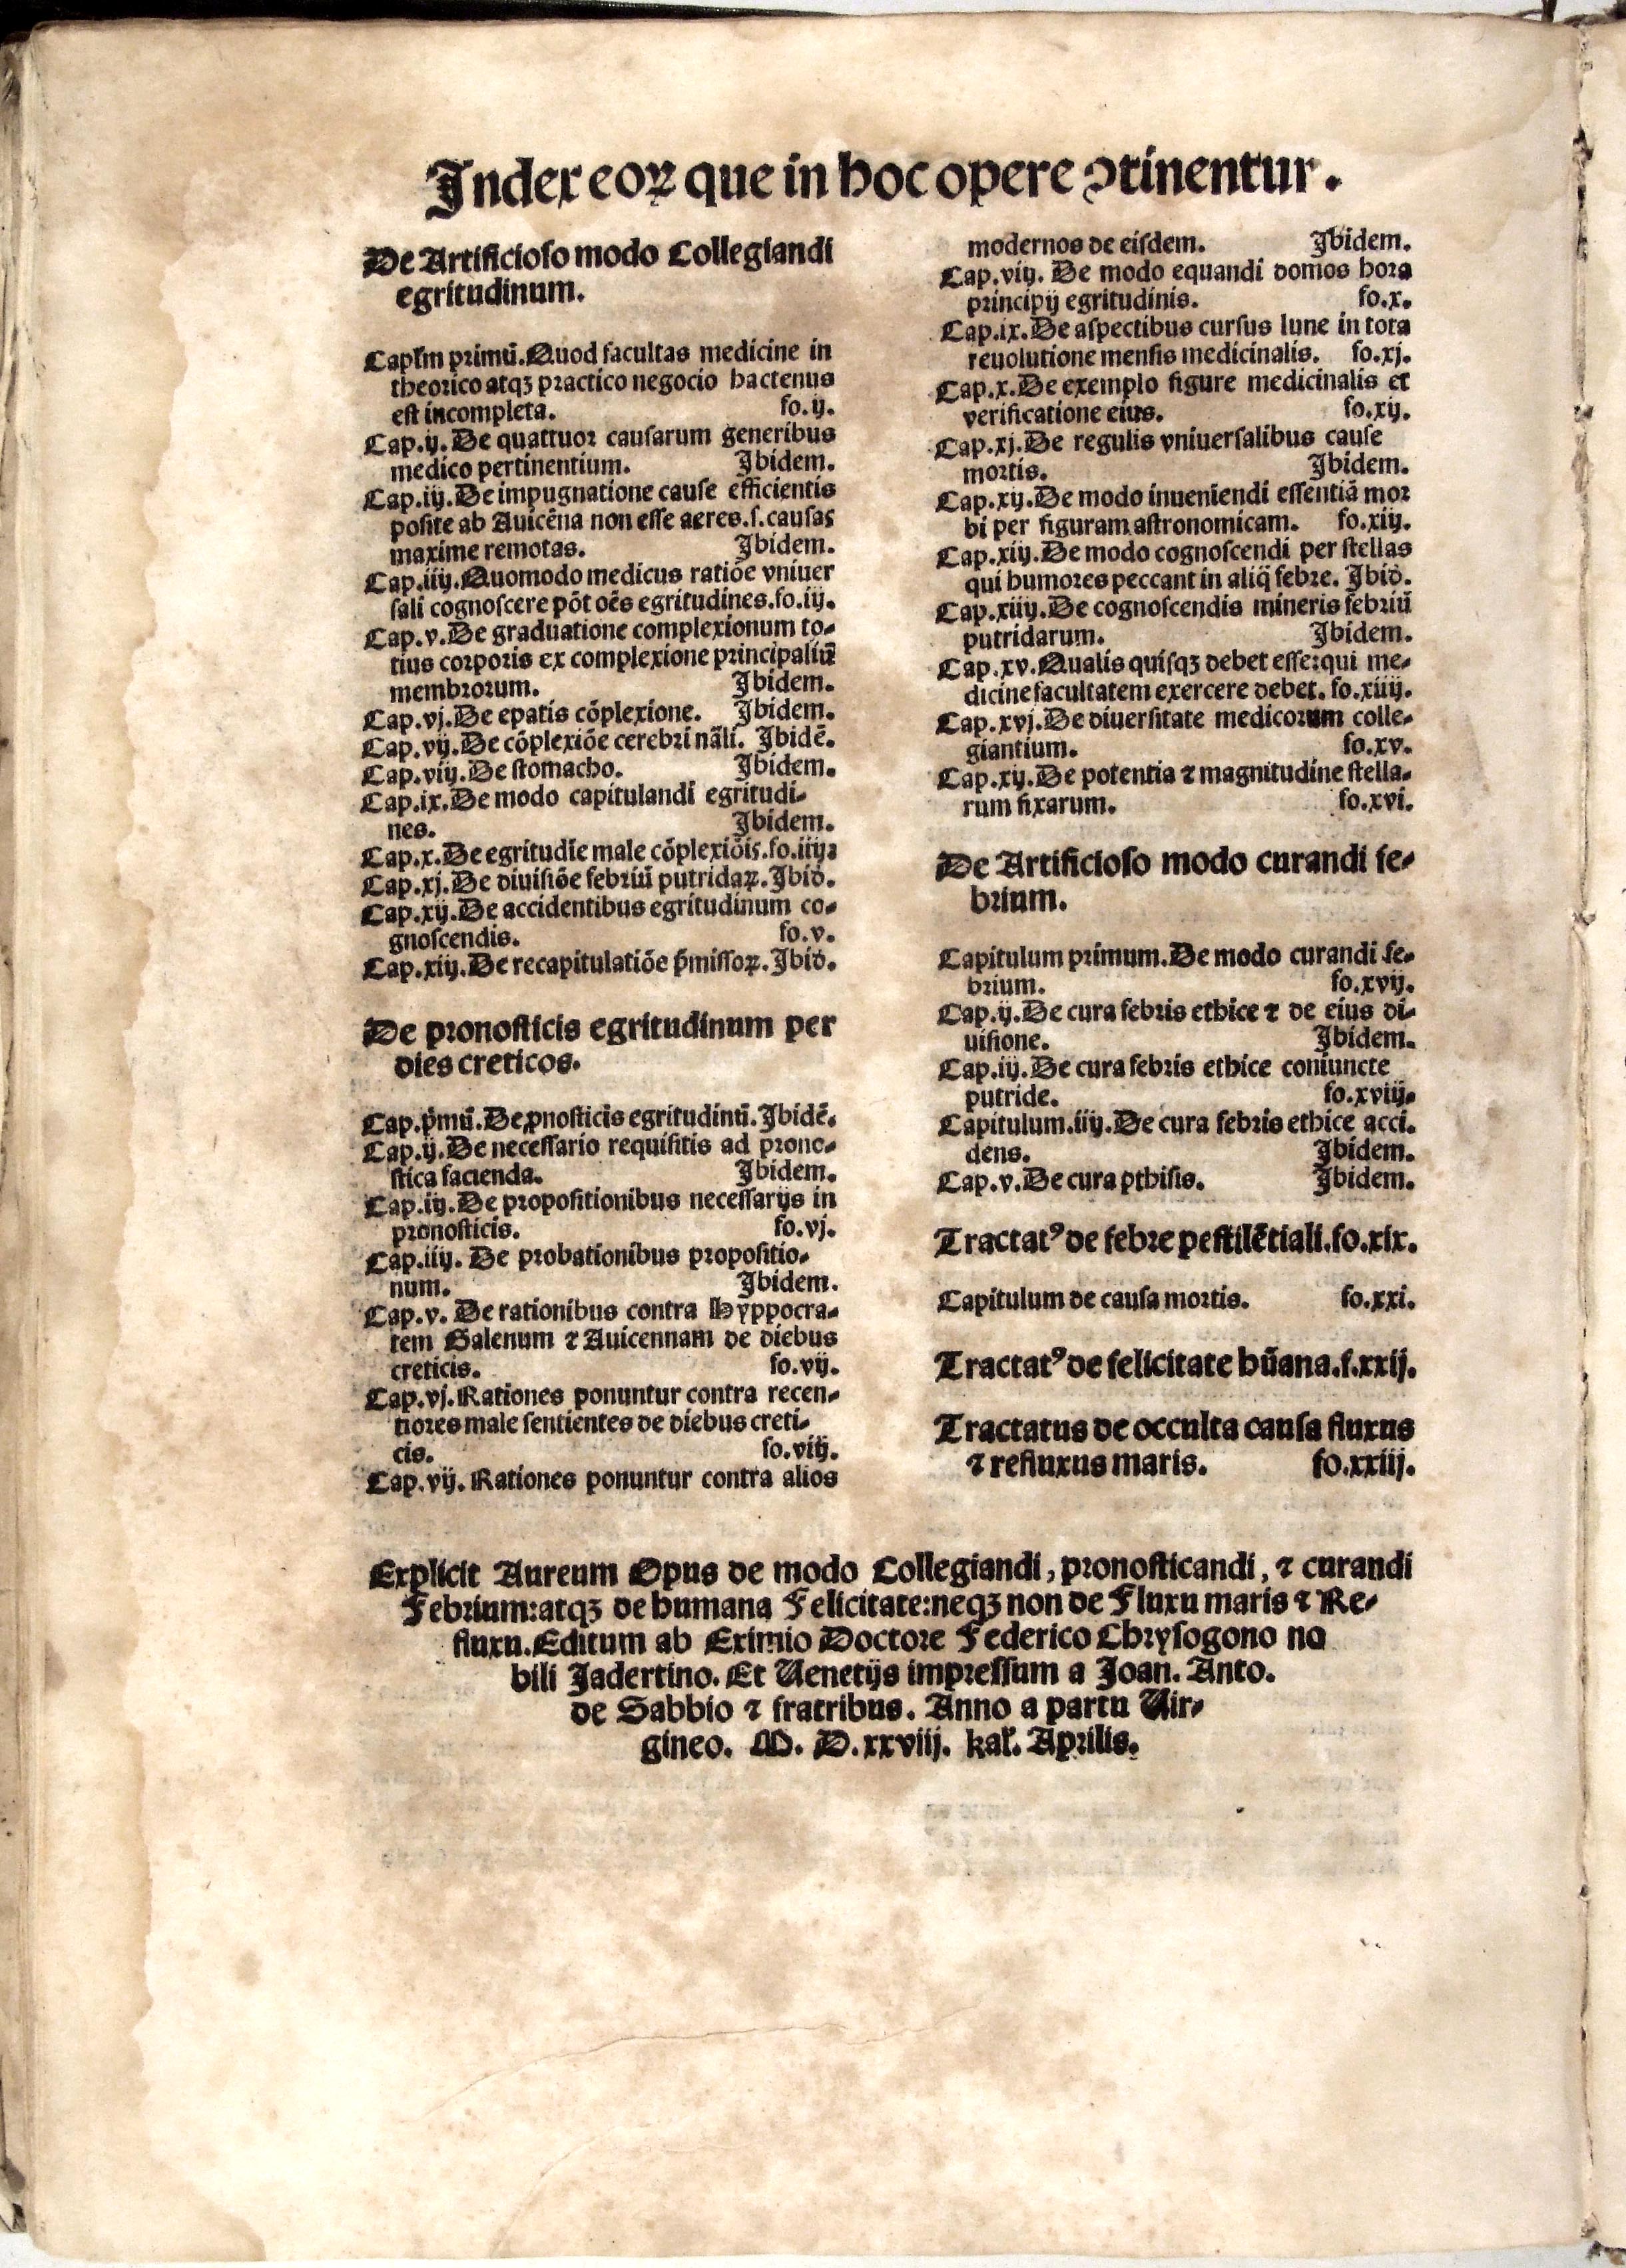 Index eoꝝ que in hoc opere ↄtinentur.
De Artificioso modo Collegiandi
egritudinum.
Capl'm primū. Quod facultas medicine in
theorico atqꝫ practico negocio hactenus
est incompleta. fo.ij.
Cap.ij. De quattuor causarum generibus
medico pertinentium. Ibidem.
Cap.iij. De impugnatione cause efficientis
posite ab Auicēna non esse aeres.s.causas
maxime remotas. Ibidem.
Cap.iiij. Quomodo medicus ratiōe vniuer
sali cognoscere pōt oēs egritudines. fo.iij.
Cap.v. De graduatione complexionum to-
tius corporis ex complexione principaliū
membrorum. Ibidem.
Cap.vj. De epatis cōplexione. Ibidem.
Cap.vij. De cōplexiōe cerebri nāli. Ibidē.
Cap.viij. De stomacho. Ibidem.
Cap.ix. De modo capitulandi egritudi-
nes. Ibidem.
Cap.x. De egritudīe male cōplexiōis. fo.iiij.
Cap.xj. De diuisiōe febriū putridaꝝ. Ibid.
Cap.xij. De accidentibus egritudinum co-
gnoscendis. fo.v.
Cap.xiij. De recapitulatiōe p̄missoꝝ. Ibid.
De pronosticis egritudinum per
dies creticos.
Cap.p̄mū. De ꝓnosticis egritudinū. Ibidē.
Cap.ij. De necessario requisitis ad prono-
stica facienda. Ibidem.
Cap.iij. De propositionibus necessarijs in
pronosticis. fo.vj.
Cap.iiij. De probationibus propositio-
num. Ibidem.
Cap.v. De rationibus contra Hyppocra-
tem Galenum ⁊ Auicennam de diebus
creticis. fo.vij.
Cap.vj. Rationes ponuntur contra recen-
tiores male sentientes de diebus creti-
cis. fo.viij.
Cap.vij. Rationes ponuntur contra alios
modernos de eisdem. Ibidem.
Cap.viij. De modo equandi domos hora
principij egritudinis. fo.x.
Cap.ix. De aspectibus cursus lune in tota
reuolutione mensis medicinalis. fo.xj.
Cap.x. De exemplo figure medicinalis et
verificatione eius. fo.xij.
Cap.xj. De regulis vniuersalibus cause
mortis. Ibidem.
Cap.xij. De modo inueniendi essentiā mor
bi per figuram astronomicam. fo.xiij.
Cap.xiij. De modo cognoscendi per stellas
qui humores peccant in aliq̄ febre. Ibid.
Cap.xiiij. De cognoscendis mineris febriū
putridarum. Ibidem.
Cap.xv. Qualis quisqꝫ debet esse:qui me-
dicine facultatem exercere debet. fo.xiiij.
Cap.xvj. De diuersitate medicorum colle-
giantium. fo.xv.
Cap.xij. De potentia ⁊ magnitudine stella-
rum fixarum. fo.xvi.
De Artificioso modo curandi fe-
brium.
Capitulum primum. De modo curandi fe-
brium. fo.xvij.
Cap.ij. De cura febris ethice ⁊ de eius di-
uisione. Ibidem.
Cap.iij. De cura febris ethice coniuncte
putride. fo.xviij.
Capitulum.iiij. De cura febris ethice acci.
dens. Ibidem.
Cap.v. De cura pthisis. Ibidem.
Tractatꝰ de febre pestilētiali. fo.xix.
Capitulum de causa mortis. fo.xxi.
Tractatꝰ de felicitate hūana. f.xxij.
Tractatus de occulta causa fluxus
⁊ refluxus maris. fo.xxiij.
Explicit Aureum Opus de modo Collegiandi, pronosticandi, ⁊ curandi
Febrium:atqꝫ de humana Felicitate:neqꝫ non de Fluxu maris ⁊ Re-
fluxu. Editum ab Eximio Doctore Federico Chrysogono no
bili Jadertino. Et Uenetijs impressum a Joan. Anto.
de Sabbio ⁊ fratribus. Anno a partu Uir-
gineo. M. D. xxviij. kal'. Aprilis.